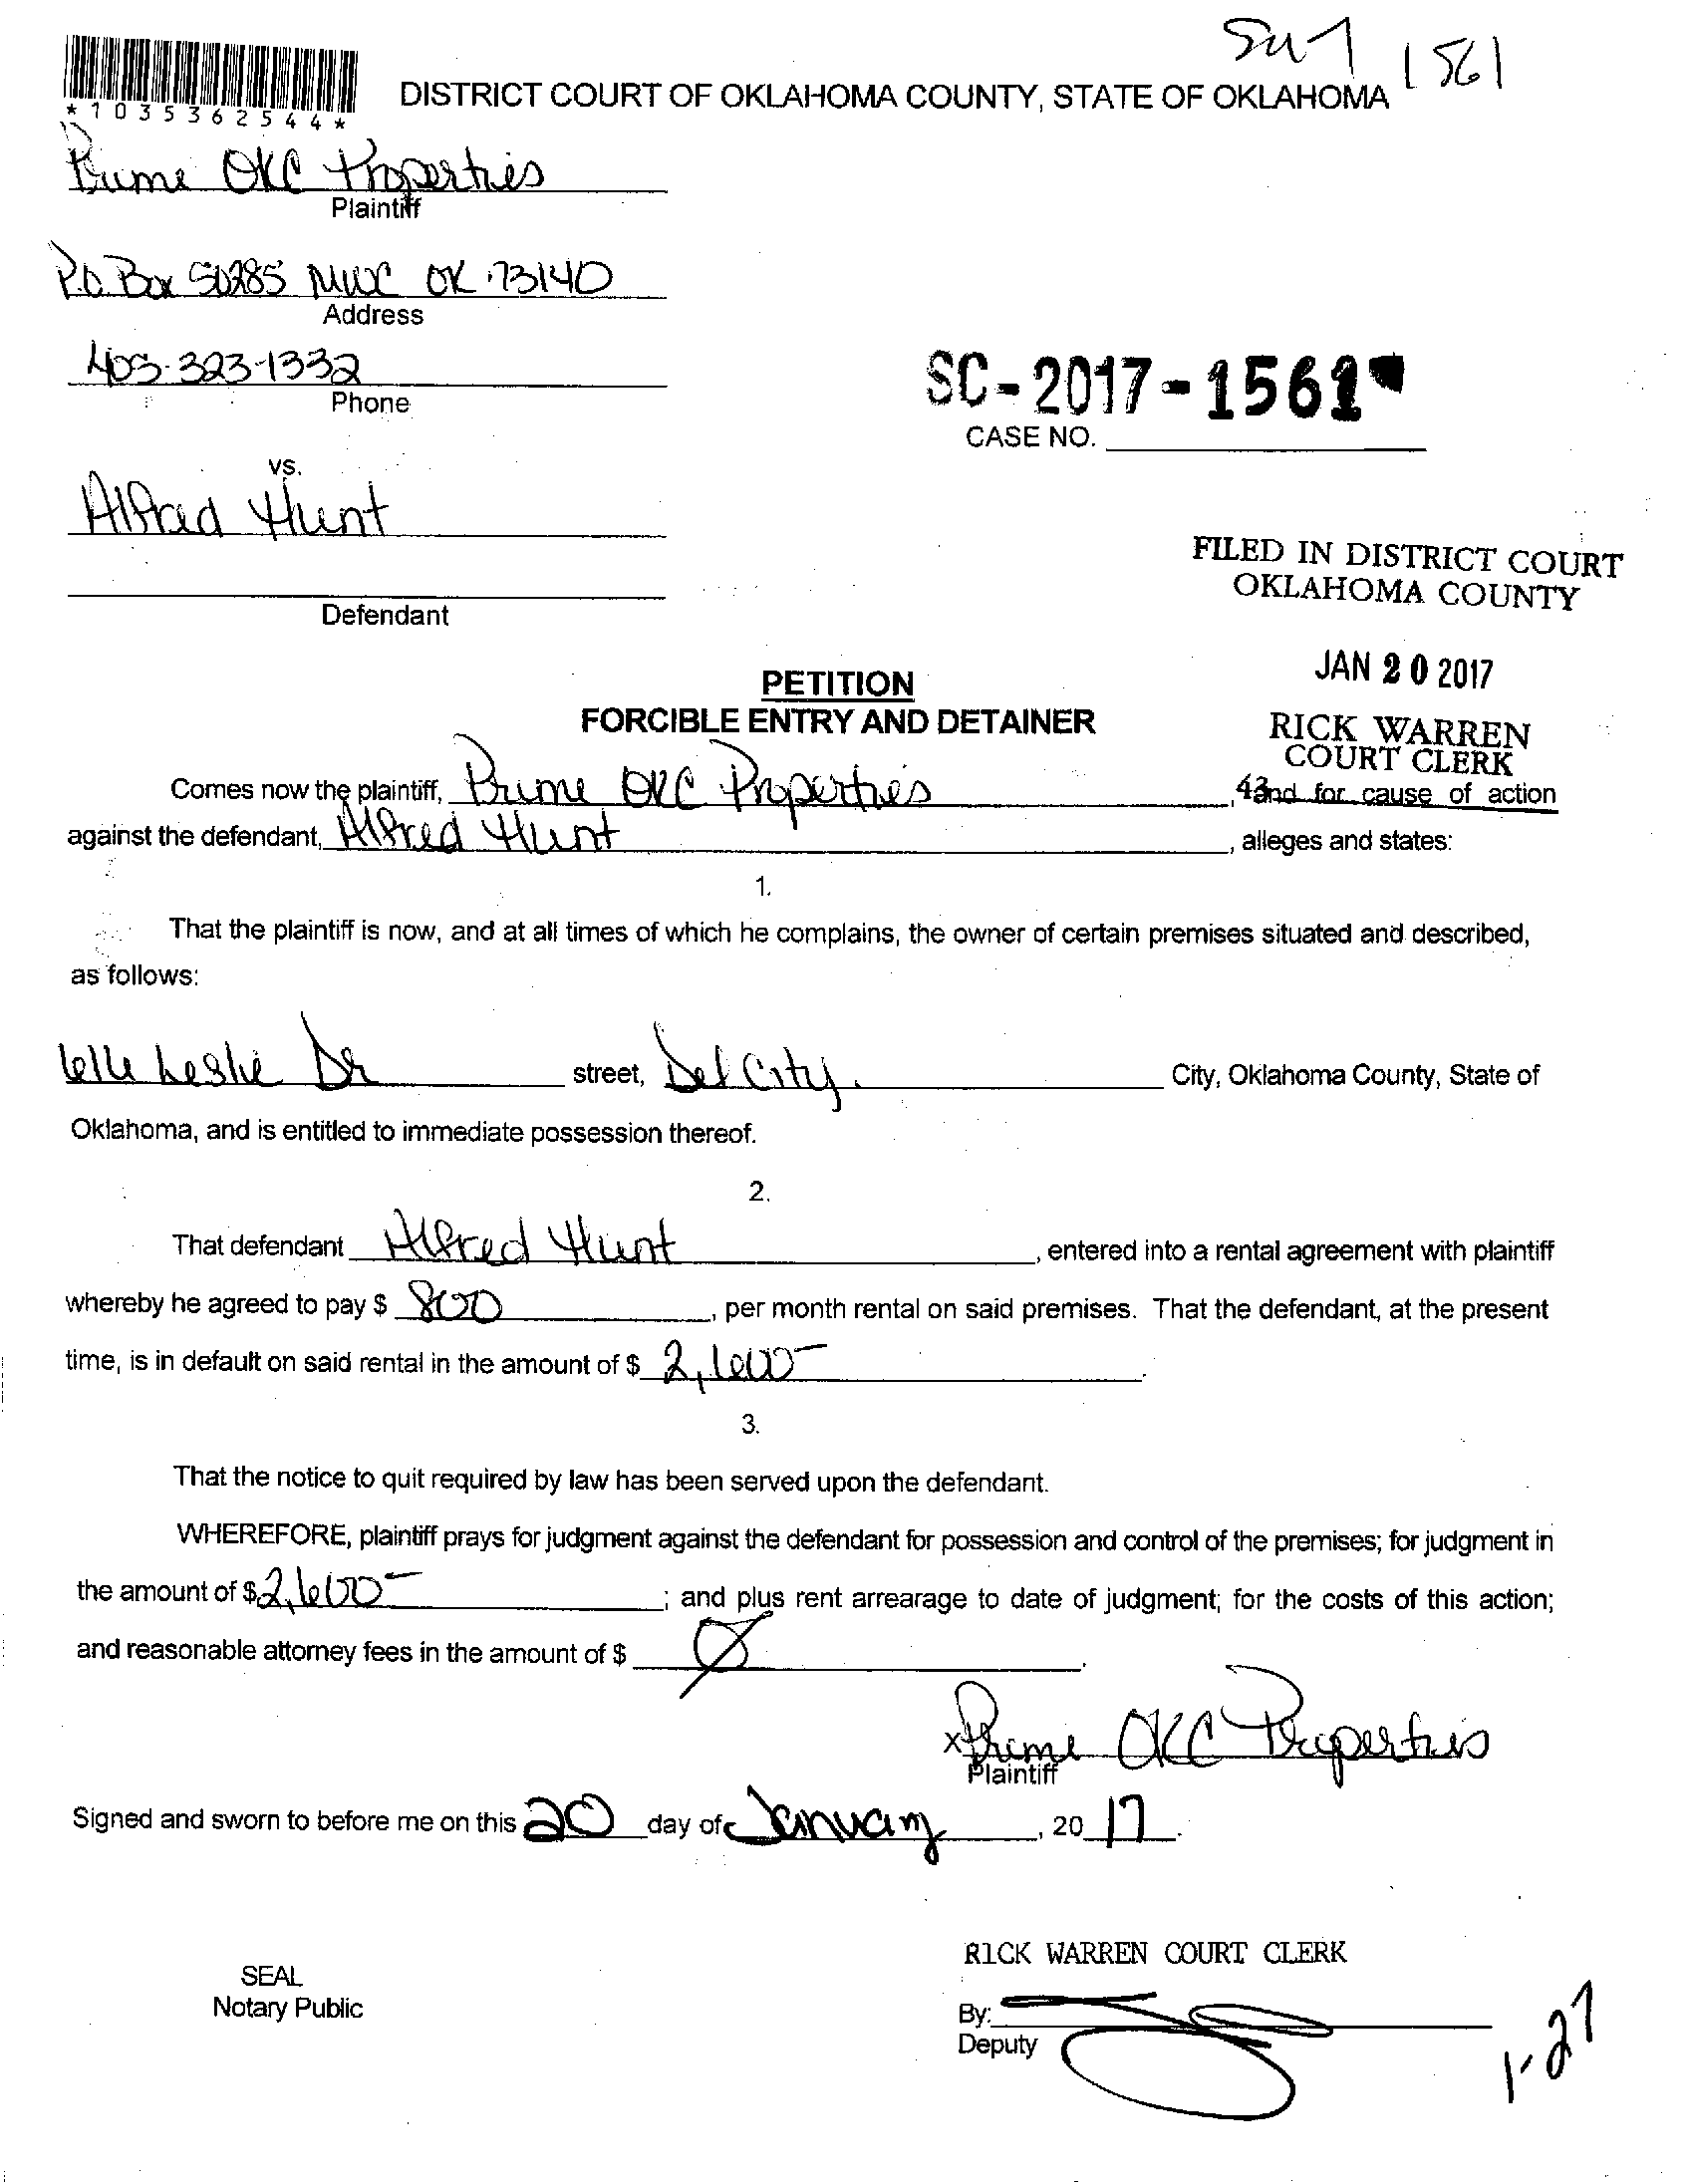 1561
*1035362544*
DISTRICT COURT OF OKLAHOMA COUNTY, STATE OF OKLAHOMA
Prime OKC Properties
Plaintiff
P.O. Box 50285 MWC OK 73140
Address
405-323-1332
Phone
SC-2017-1561
CASE NO.
vs.
Alfred Hunt
FILED IN DISTRICT COURT
OKLAHOMA COUNTY
Defendant
JAN 20 2017
PETITION
FORCIBLE ENTRY AND DETAINER
RICK WARREN
COURT CLERK
Comes now the plaintiff, Prime OKC Properties, and for cause of action
against the defendant, Alfred Hunt, alleges and states:
1.
That the plaintiff is now, and at all times of which he complains, the owner of certain premises situated and described,
as follows:
Leslie Dr street, Del City City, Oklahoma County, State of
Oklahoma, and is entitled to immediate possession thereof.
2.
That defendant Alfred Hunt, entered into a rental agreement with plaintiff
whereby he agreed to pay $ 800, per month rental on said premises. That the defendant, at the present
time, is in default on said rental in the amount of $ 2,600-.
3.
That the notice to quit required by law has been served upon the defendant.
WHEREFORE, plaintiff prays for judgment against the defendant for possession and control of the premises; for judgment in
the amount of $2,600-; and plus rent arrearage to date of judgment; for the costs of this action;
and reasonable attorney fees in the amount of $ Ø.
x Prime OKC Properties
Plaintiff
Signed and sworn to before me on this 20 day of January, 20 17.
RICK WARREN COURT CLERK
SEAL
Notary Public
By:
Deputy
1-27